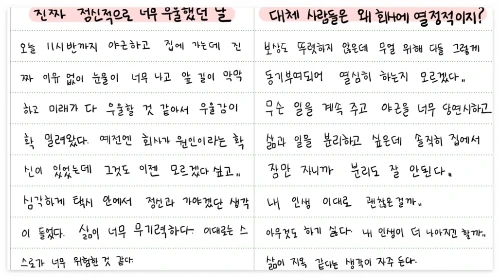 진짜 정신적으로 너무 우울했던 날
오늘 11시반까지 야근하고 집에 가는데 진
짜 이유 없이 눈물이 너무 나고 앞 길이 막막
하고 미래가 다 우울할 것 같아서 우울감이
확 밀려왔다. 예전엔 회사가 원인이라는 확
신이 있었는데 그것도 이젠 모르겠다 싶고..
심각하게 택시 안에서 정신과 가야겠단 생각
이 들었다. 삶이 너무 무기력하다. 이대로는 스
스로가 너무 위험한 것 같다.
대체 사람들은 왜 회사에 열정적이지?
보상도 뚜렷하지 않은데 무얼 위해 다들 그렇게
동기부여되어 열심히 하는지 모르겠다..
무슨 일을 계속 주고 야근들 너무 당연시하고
삶과 일을 분리하고 싶은데 솔직히 집에서
잠만 자니까 분리도 잘 안된다.
내 인생 이대로 괜찮은걸까..
아무것도 하기 싫다. 내 인생이 더 나아지긴 할까..
삶이 지옥 같다는 생각이 자주 든다.